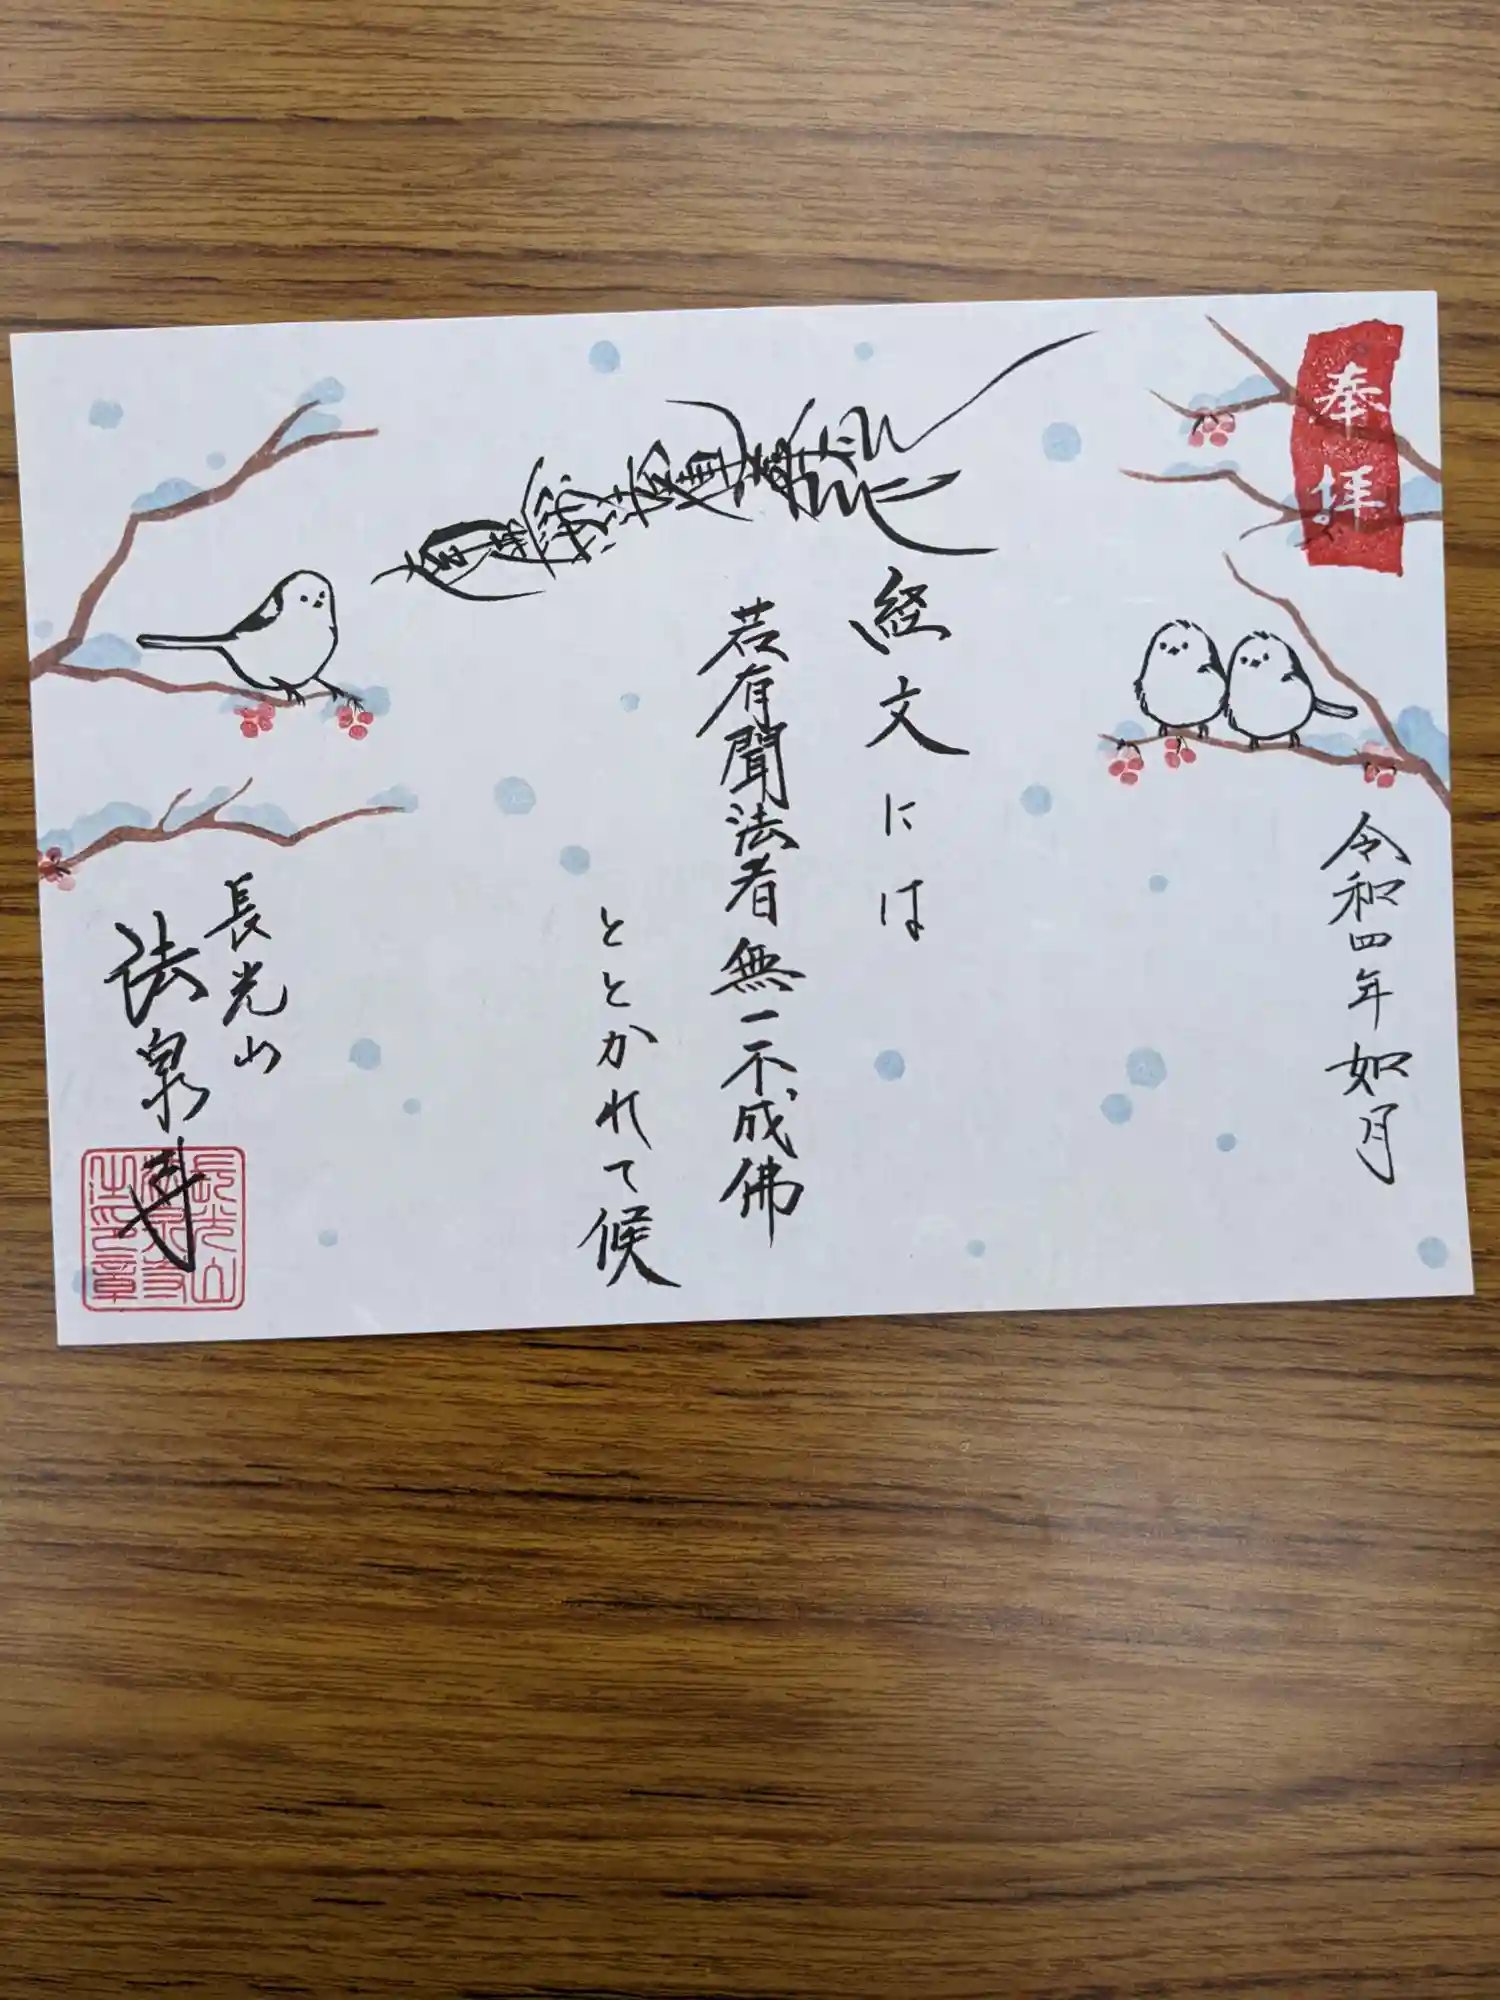 奉拝
令和四年如月
南無妙法蓮華経
経文には
若有聞法者無一不成佛
ととかれて候
長光山
法泉寺
長光山
法泉寺
之印章